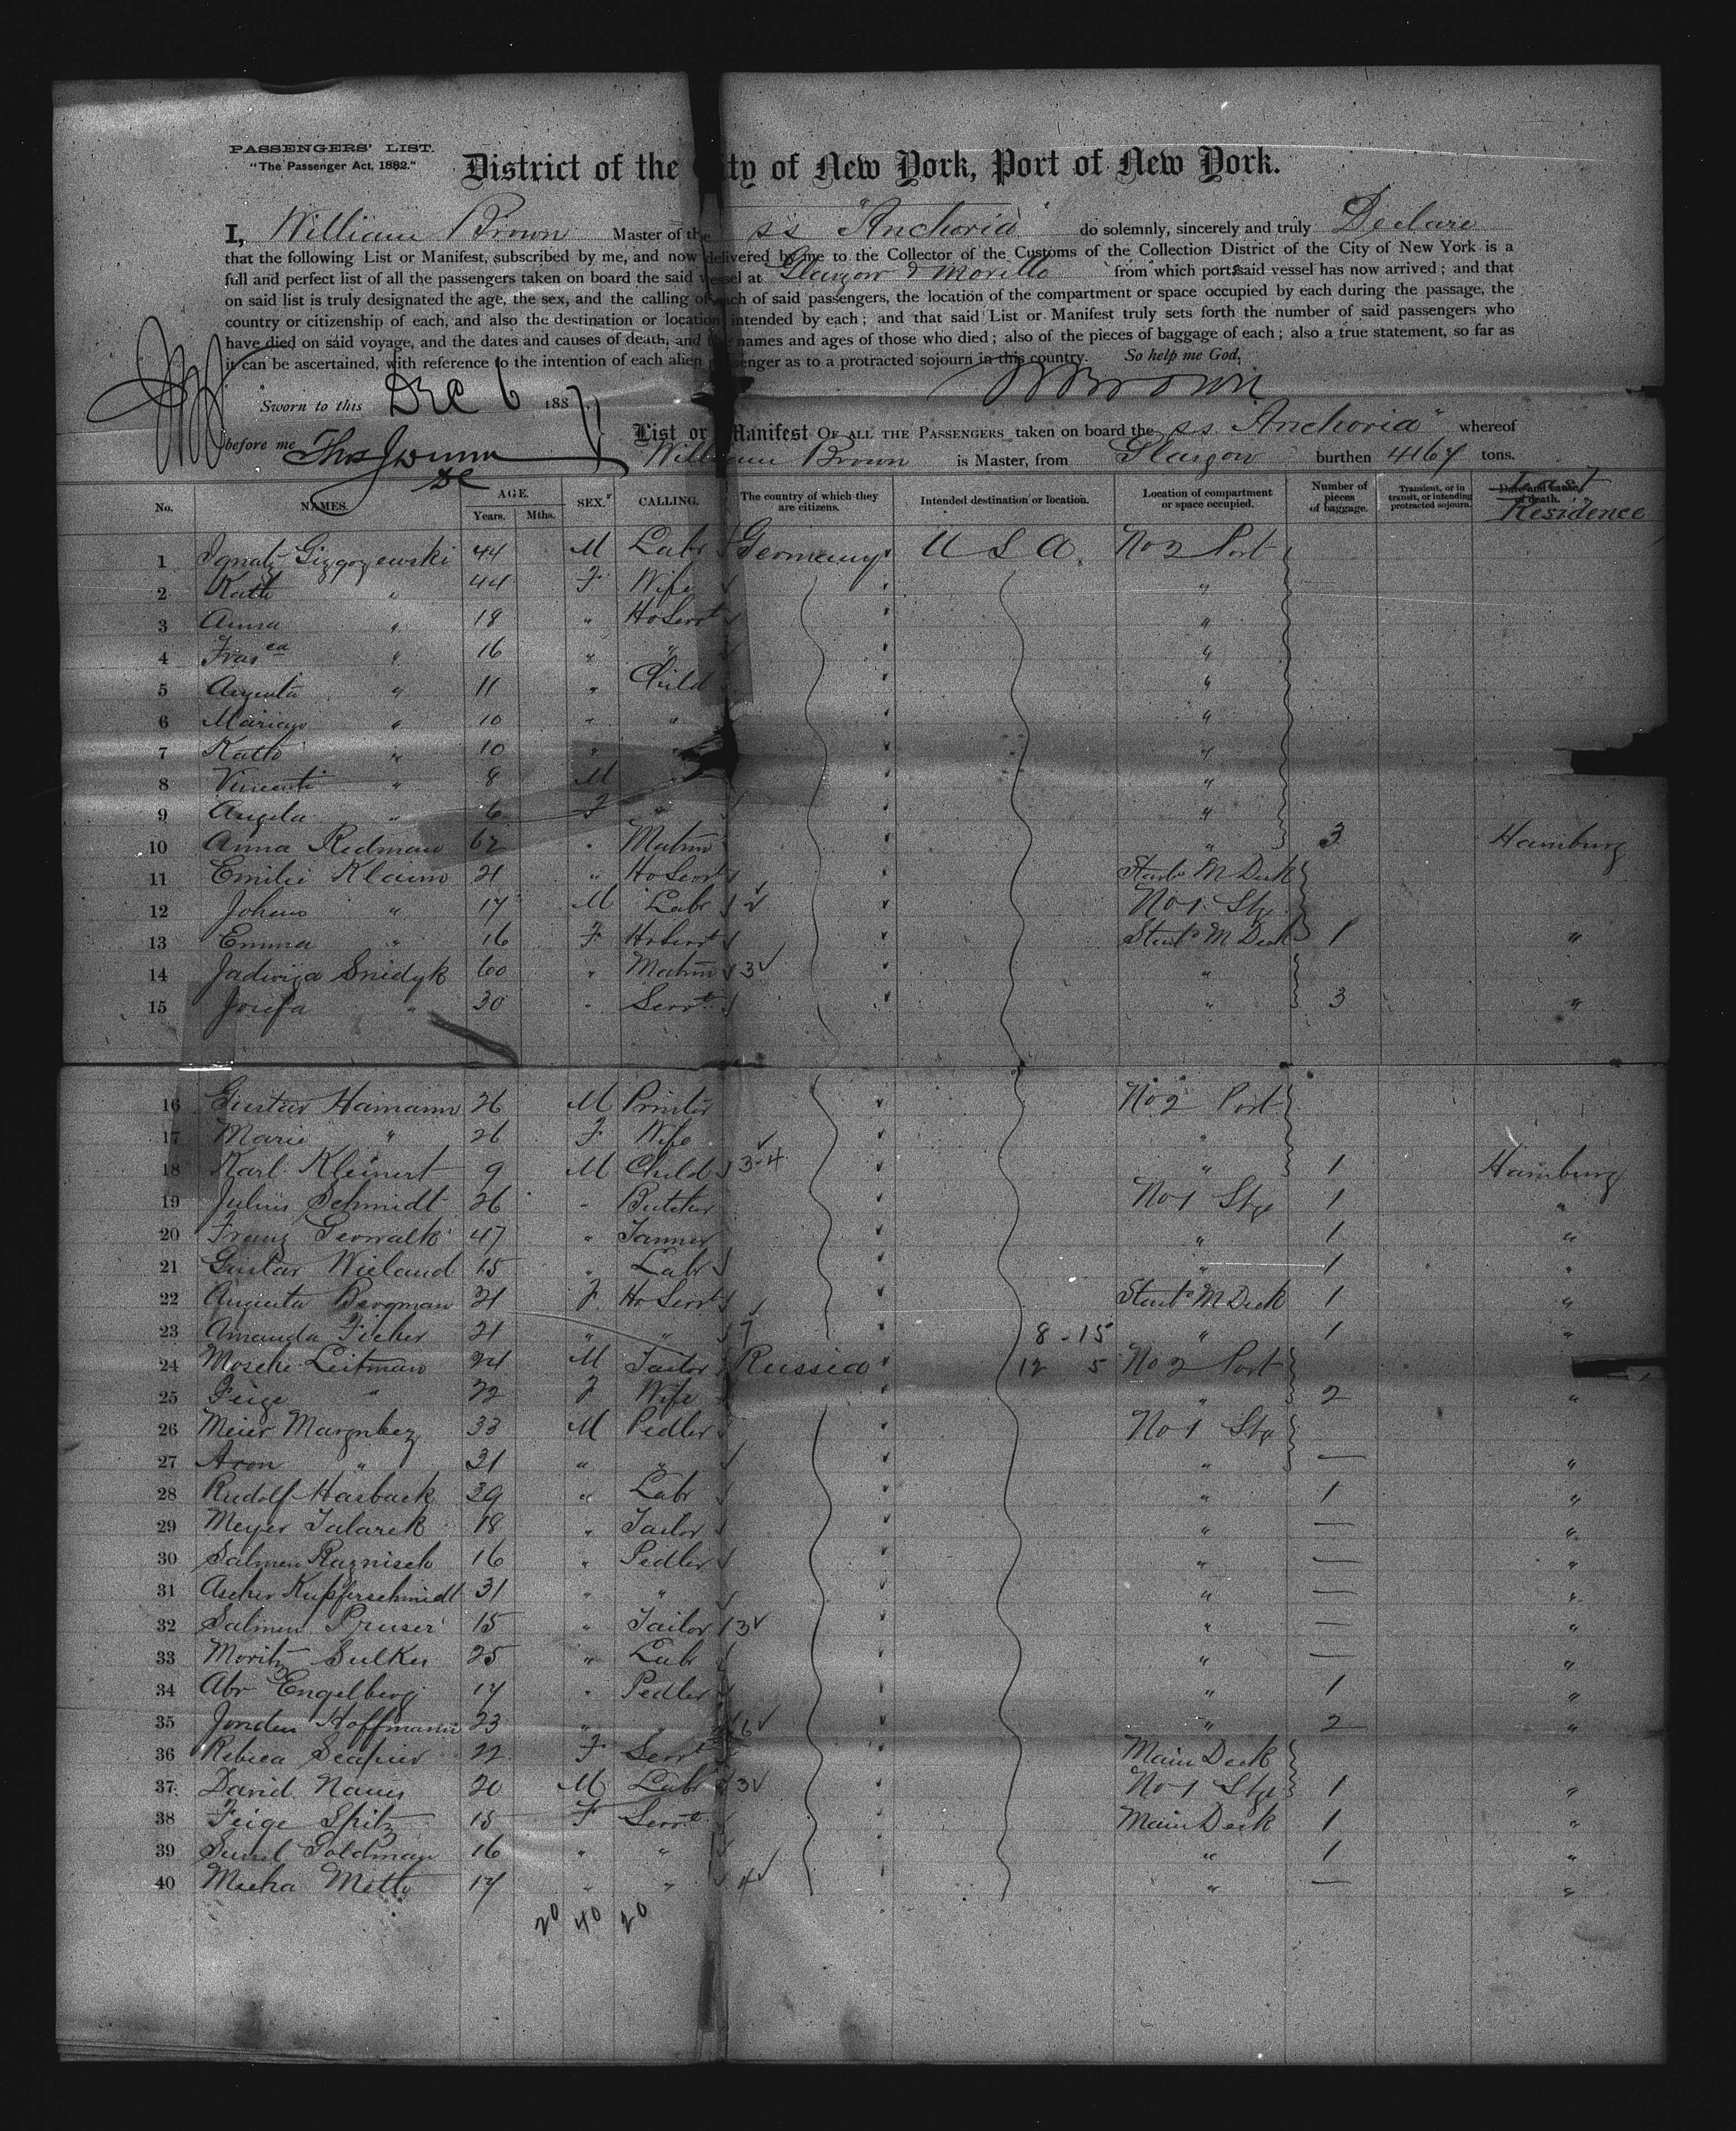 PASSENGERS' LIST.
"The Passenger Act, 1882."
District of the City of New York, Port of New York.
I, William Brown Master of the ss "Anchoria" do solemnly, sincerely and truly Declare
that the following List or Manifest, subscribed by me, and now delivered by me to the Collector of the Customs of the Collection District of the City of New York is a
full and perfect list of all the passengers taken on board the said vessel at Glasgow & Moville from which ports said vessel has now arrived; and that
on said list is truly designated the age, the sex, and the calling of each of said passengers, the location of the compartment or space occupied by each during the passage, the
country or citizenship of each, and also the destination or location intended by each; and that said List or Manifest truly sets forth the number of said passengers who
have died on said voyage, and the dates and causes of death, and the names and ages of those who died; also of the pieces of baggage of each; also a true statement, so far as
it can be ascertained, with reference to the intention of each alien passenger as to a protracted sojourn in this country. So help me God,
W Brown
Sworn to this Dec 6 1887
before me Thos J Dunn
List or Manifest OF ALL THE PASSENGERS taken on board the ss Anchoria" whereof
William Brown is Master, from Glasgow burthen 4167 tons.
No. NAMES. AGE. Years. Mths. SEX. CALLING. The country of which they are citizens. Intended destination or location. Location of compartment or space occupied. Number of pieces of baggage. Transient, or in transit, or intending protracted sojourn. Date and cause of death. Last Residence
1 Ignatz 44 M Labr Germany U S A. No 2 Port
2 Kath " 44 F Wife "
3 Anna " 18 " Ho Servt "
4 " 16 " " "
5 Augusta " 11 " Child "
6 " 10 " " "
7 " 10 " " "
8 Vincenti " 8 M " "
9 Angela " 6 F " "
10 Anna Redman 62 " Matrn " 3 Hamburg
11 Emilie Klamm 21 " Ho Servt Starb M Deck
12 Johann " 17 M Labr 2 No 1 Stge
13 Emma " 16 F Ho Servt Starb M Deck 1 "
14 Jadwiga Snidyk 60 " Matrn 3 "
15 Josefa " 30 " Servt " 3 "
16 Gustav Hamann 26 M Printer No 2 Port
17 Marie " 26 F Wife "
18 Karl Kleinert 9 M Child 3-4 " 1 Hamburg
19 Julius Schmidt 26 " Butcher No 1 Stge 1 "
20 Franz 47 " Tanner " 1 "
21 Gustav Wieland 15 " Labr " 1 "
22 Augusta Bergman 21 F Ho Servt Starb M Deck 1 "
23 Amanda Ficher 21 " " 7 8-15 " 1 "
24 Mosche Leitman 24 M Tailor Russia 12 5 No 2 Port
25 Feige " 22 F Wife " 2 "
26 Meier 33 M Pedler No 1 Stge
27 Aron " 31 " " " — "
28 Rudolf Hasback 39 " Labr " 1 "
29 Meyer Talarek 18 " Tailor " — "
30 Salmen 16 " Pedler " — "
31 Ascher Kupferschmidt 31 " " " — "
32 Salmen Pruser 15 " Tailor 3 " — "
33 Moritz Sulkes 25 " Labr " — "
34 Abr Engelberg 17 " Pedler " 1 "
35 Hoffmann 23 " " 6 " 2 "
36 22 F Servt Main Deck
37 David 20 M Labr 3 No 1 Stge 1 "
38 Feige Spitz 15 F Servt Main Deck 1 "
39 Goldman 16 " " " 1 "
40 17 " " 4 " — "
20 40 20